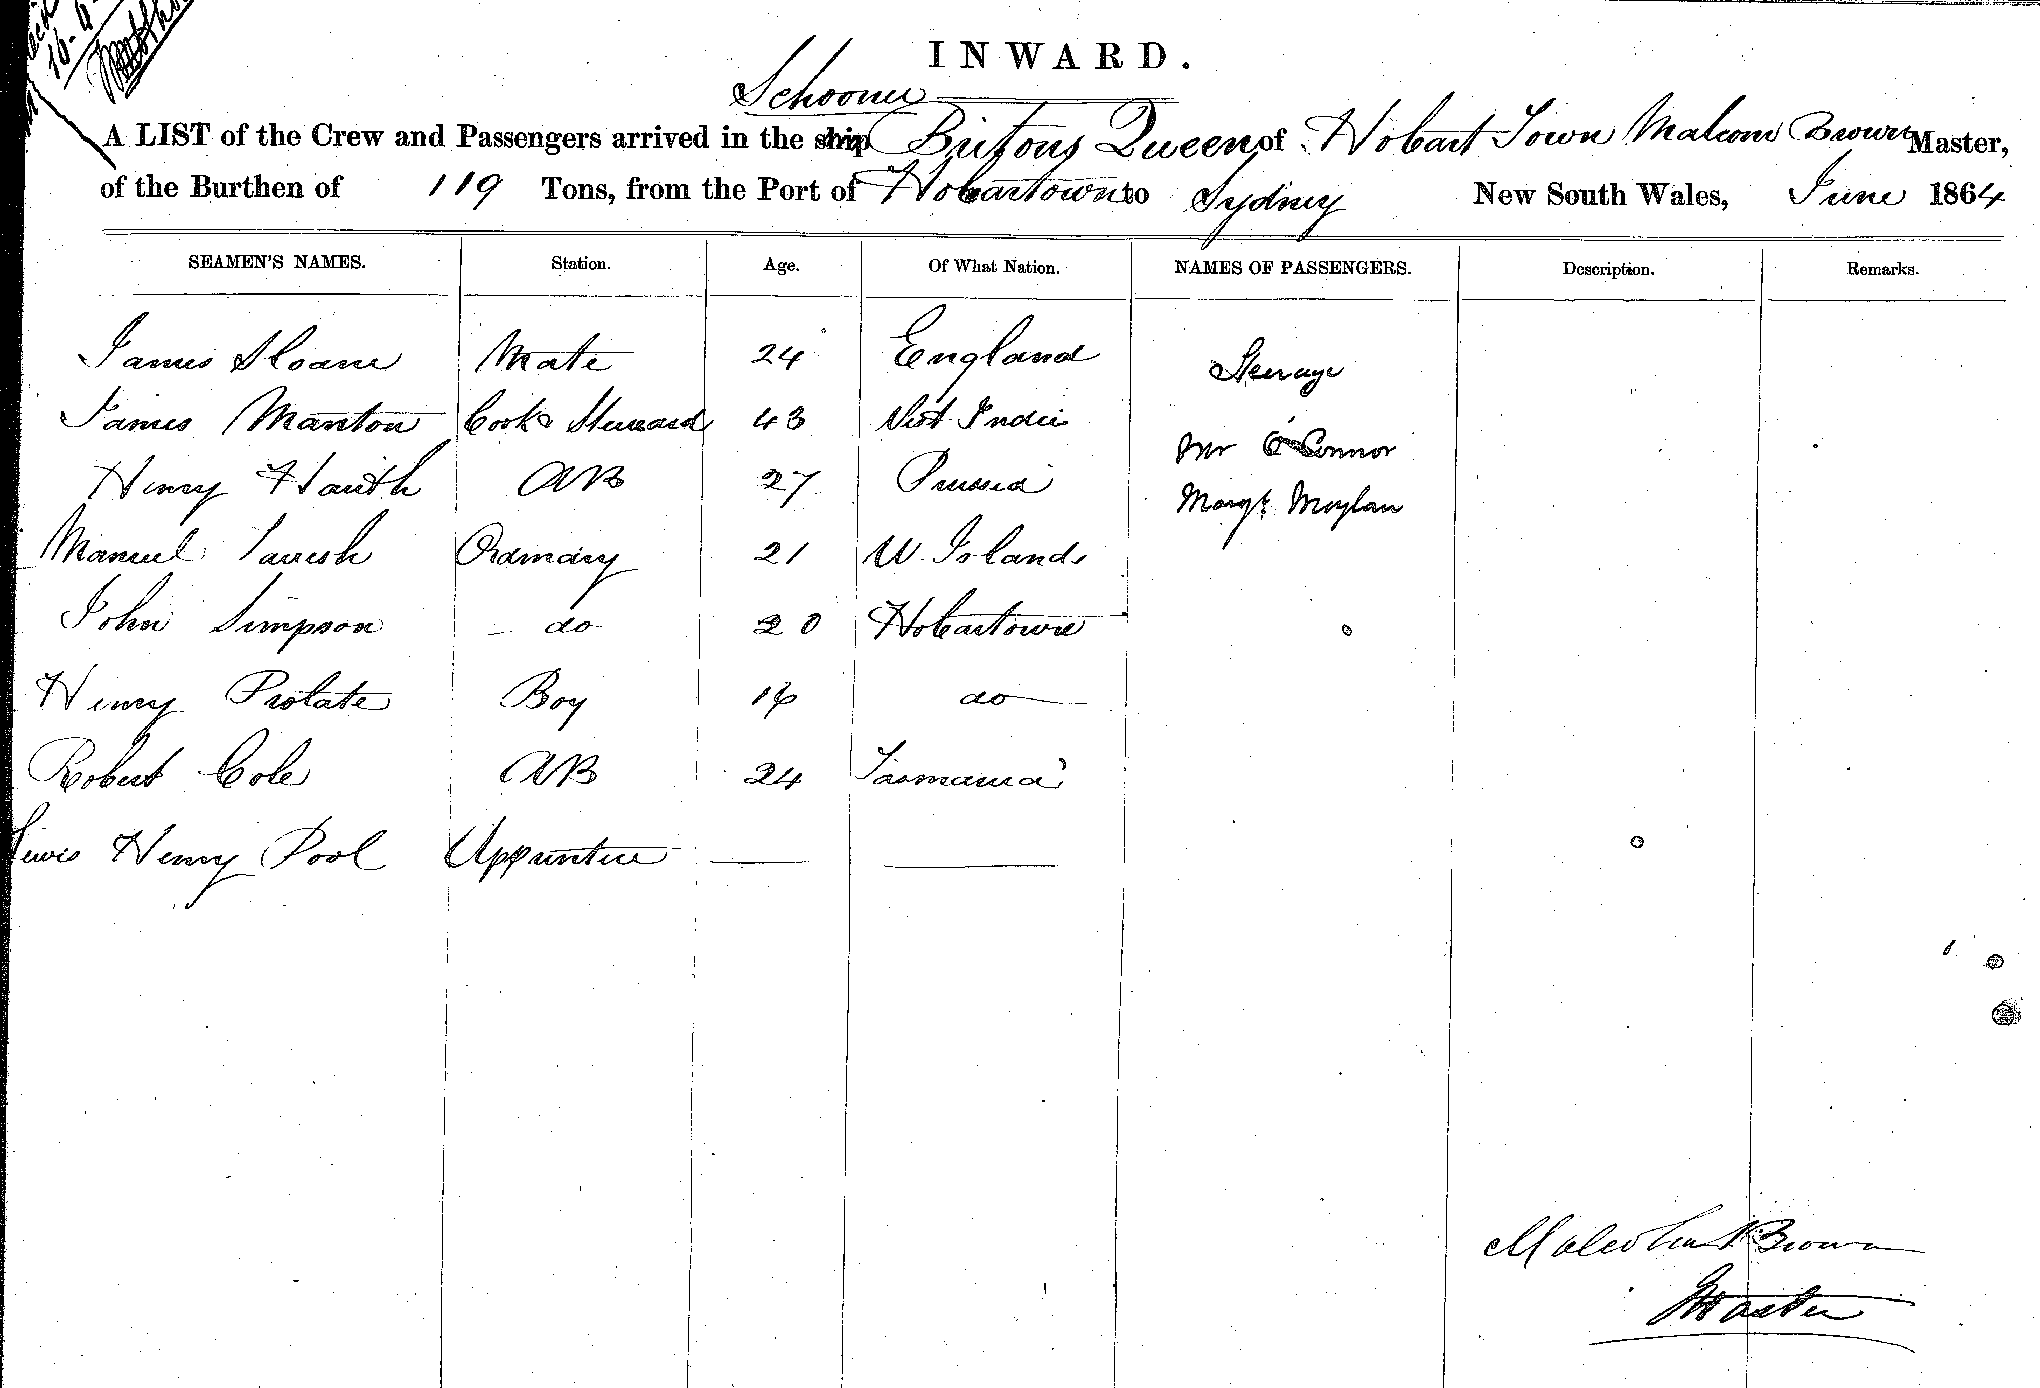 INWARD.
Schooner
A LIST of the Crew and Passengers arrived in the ship Britons Queen of Hobart Town Malcom Brown Master,
of the Burthen of 119 Tons, from the Port of Hobartown to Sydney New South Wales, June 1864
SEAMEN'S NAMES. Station. Age. Of What Nation. NAMES OF PASSENGERS. Description. Remarks.
James Sloane Mate 24 England Steerage
James Manton Cook & Steward 43 West Indies
Mr O'Connor
Henry 27 AB Prussia
Margt Moylan
Manuel Ordinary 21 W. Islands
John Simpson do 20 Hobartown
Henry Protate Boy 16 do
Robert Cole AB 24 Tasmania
Lewis Henry Pool Apprentice
Malcolm Brown
Master